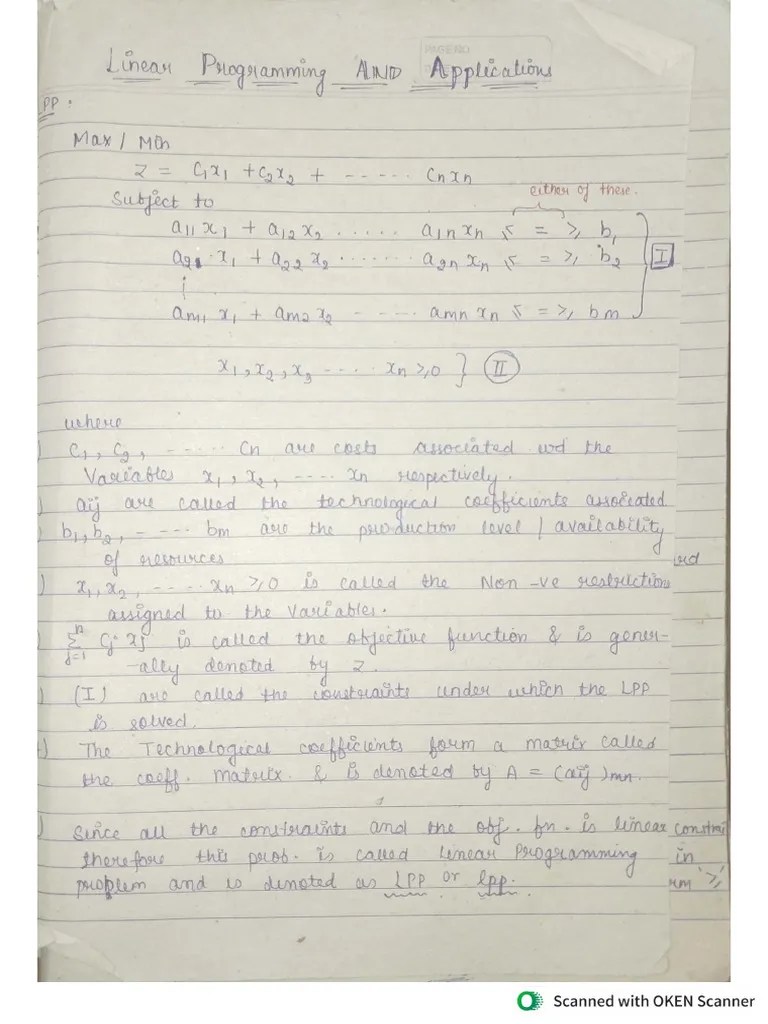 PAGE NO
Linear Programming AND Applications
PP.
Max / Min
Z = C₁x₁ + C₂x₂ + ------ Cnxn
either of these.
Subject to
a₁₁x₁ + a₁₂x₂ ...... a₁n xn ≤ = ≥, b₁
a₂₁ x₁ + a₂₂ x₂ ....... a₂n xn ≤ = ≥, b₂
I
am₁ x₁ + am₂ x₂ - ..... amn xn ≤ = ≥, bm
x₁, x₂, x₃ ..... xn ≥, 0 } II
where
) C₁, C₂, ------ Cn are costs associated wd the
Variables x₁, x₂, ---- xn respectively.
) aij are called the technological coefficients associated
) b₁, b₂, - --- bm are the production level / availability
of resources
) x₁, x₂, ------ xn ≥, 0 is called the Non -ve restrictions
assigned to the Variables.
) n Σ j=1 Cj xj is called the objective function & is gener-
-ally denoted by z.
) (I) are called the constraints under which the LPP
is solved.
) The Technological coefficients form a matrix called
the coeff. matrix. & is denoted by A = (aij)mn.
) Since all the constraints and the obj. fn. is linear
therefore this prob. is called Linear Programming
problem and is denoted as LPP or lpp.
constrai
in
rm '≥,'
Scanned with OKEN Scanner